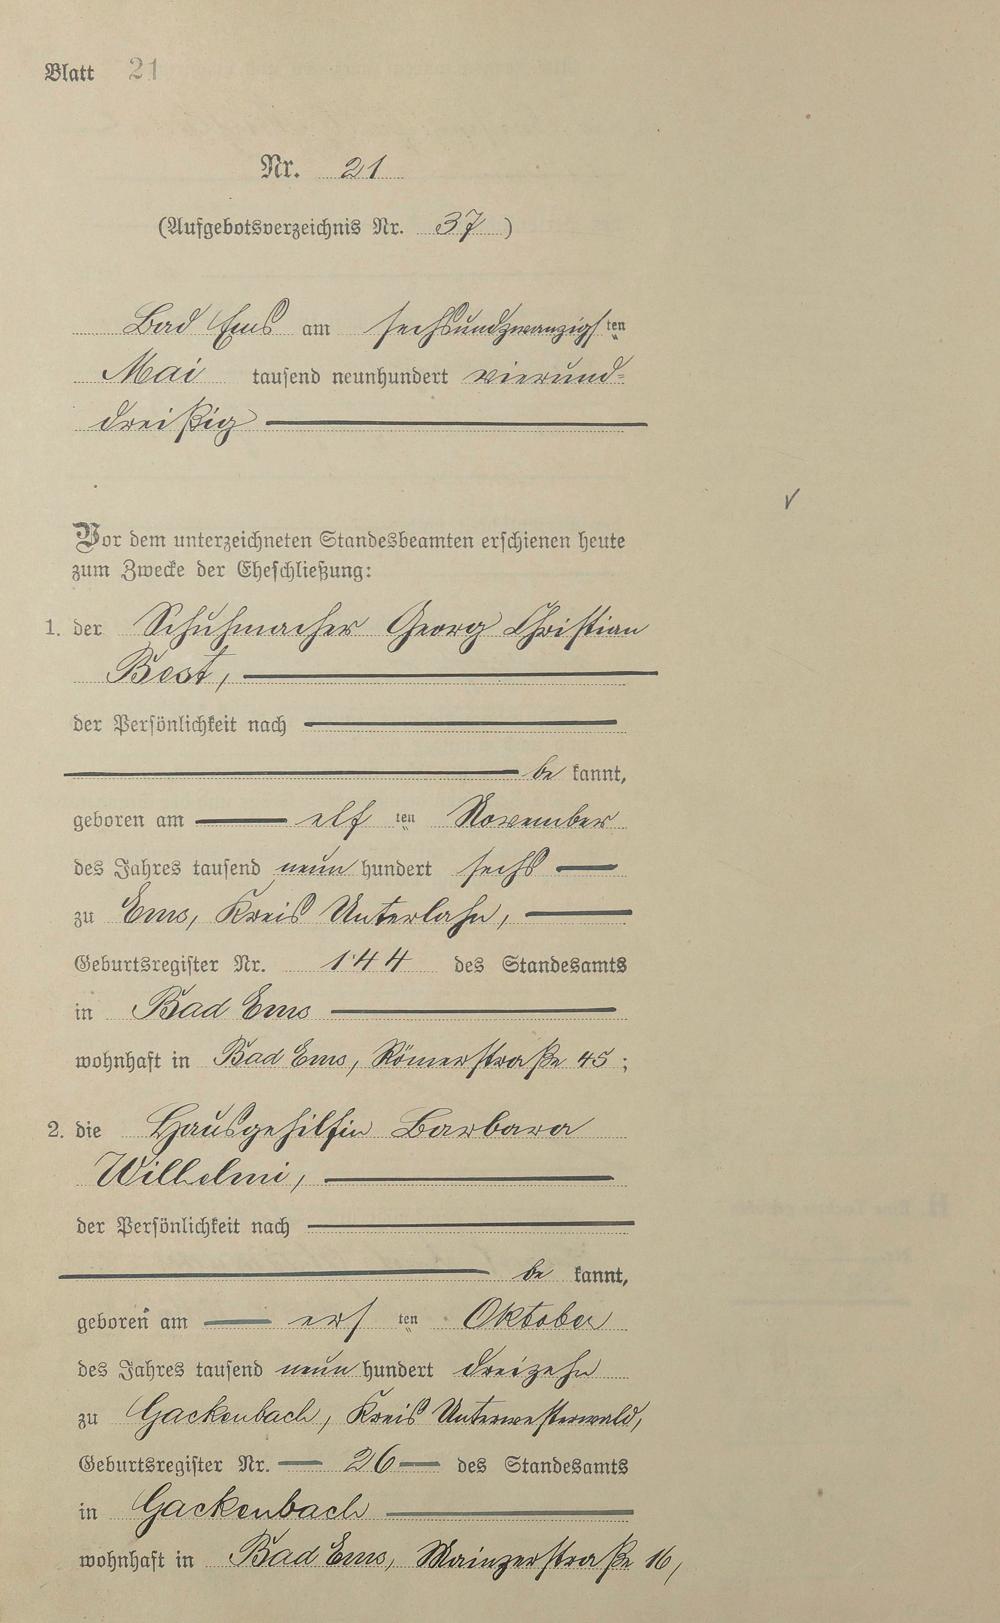 Blatt 21
Nr. 21
(Aufgebotsverzeichnis Nr. 37)
Bad Ems am sechsundzwanzigsten
Mai tausend neunhundert vierund-
dreißig
Vor dem unterzeichneten Standesbeamten erschienen heute
zum Zwecke der Eheschließung:
1. der Schuhmacher Georg Christian
Best,
der Persönlichkeit nach
be kannt,
geboren am elf ten November
des Jahres tausend neun hundert sechs
zu Ems, Kreis Unterlahn,
Geburtsregister Nr. 144 des Standesamts
in Bad Ems
wohnhaft in Bad Ems, Römerstraße 45;
2. die Hausgehilfin Barbara
Wilhelmi,
der Persönlichkeit nach
be kannt,
geboren am ers ten Oktober
des Jahres tausend neun hundert dreizehn
zu Gackenbach, Kreis Unterwesterwald,
Geburtsregister Nr. 26 des Standesamts
in Gackenbach
wohnhaft in Bad Ems, Mainzerstraße 16,